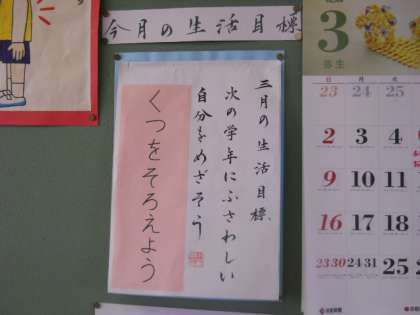 今月の生活目標
三月の生活目標
次の学年にふさわしい
自分をめざそう
くつをそろえよう
3
弥生
日 月 火
23 24 25
2 3 4
9 10 11
16 17 18
23 30 24 31 25